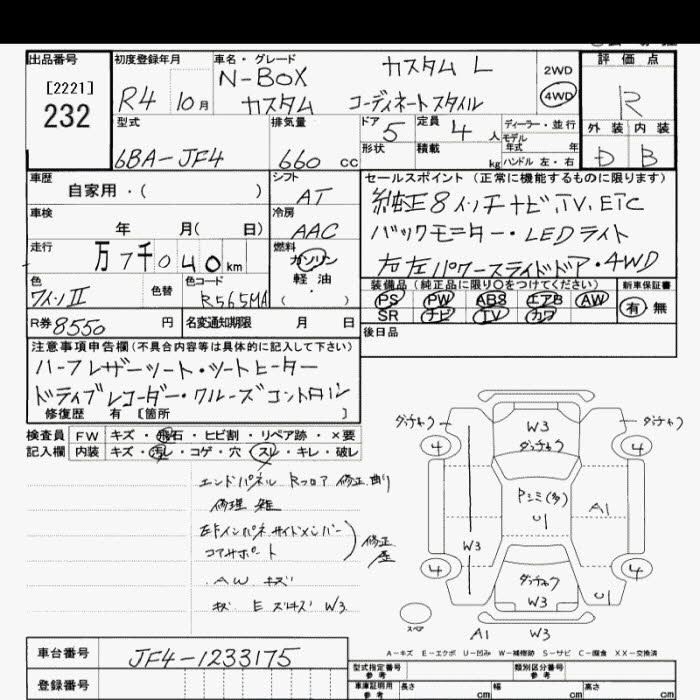 出品番号 初度登録年月 車名・グレード 評価点
[2221]
232
R4 10月
N-BOX カスタム L
カスタム コーディネートスタイル
2WD
4WD
R
型式 排気量 ドア 定員 ディーラー・並行
6BA-JF4 660 cc 5 4人 モデル年式 年
形状 積載 kg ハンドル 左・右
外装 内装
D B
車歴 シフト セールスポイント(正常に機能するものに限ります)
自家用・( ) AT
純正8インチナビ、TV、ETC
車検 冷房
年 月( 日) AAC
バックモニター・LEDライト
走行 燃料
万7千040km ガソリン
軽油
・( )
左右パワースライドドア・4WD
色 色替 色コード
ワインⅡ R565MA
装備品(純正品に限り○をつけてください) 新車保証書
PS PW ABS エアB AW
SR ナビ TV カワ
有・無
R券 8550 円 名変通知期限 月 日
後日品
注意事項申告欄(不具合内容等は具体的に記入して下さい)
ハーフレザーシート・シートヒーター
ドライブレコーダー・クルーズコントロル
修復歴 有 〔箇所 〕
検査員 FW キズ・飛石・ヒビ割・リペア跡・×要
記入欄 内装 キズ・汚レ・コゲ・穴・スレ・キレ・破レ
エンドパネル Rフロア 修正 曲り
修理
左Fインパネ サイドメンバー
コアサポート
修正
AW キズ
キズ E W3
ダッチャク ダッチャク
W3
ダッチャク
4 4
Pシミ(多)
U1
A1
W3
4 4
ダッチャク
W3
U1
スペア
A1 W3
A-キズ E-エクボ U-凹み W-補修跡 S-サビ C-腐食 XX-交換済
車台番号 JF4-1233175
登録番号
型式指定番号 参考 類別区分番号 参考
車庫証明用 参考 長さ cm 幅 cm 高さ cm